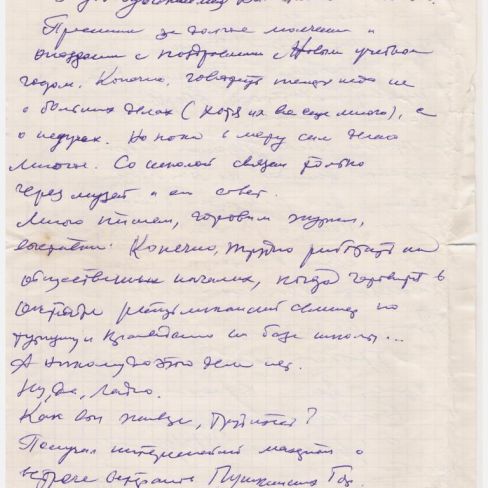 Простите за долгое молчание и
опоздание с поздравлением с Новым учебным
годом. Конечно, говорить теперь надо не
о больших делах (хотя их все еще много), а
о недугах. Но пока в меру сил делаю
многое. Со школой связан только
через музей и его совет.
Много пишем, готовим журнал,
выставки. Конечно, трудно работать на
общественных началах, когда говорят в
октябре республиканский семинар по
туризму и краеведению на базе школы...
А никому до этого дела нет.
Ну, да, ладно.
Как Вы живете,
Получил интересный материал о
встрече ветеранов Пушкинских Гор.